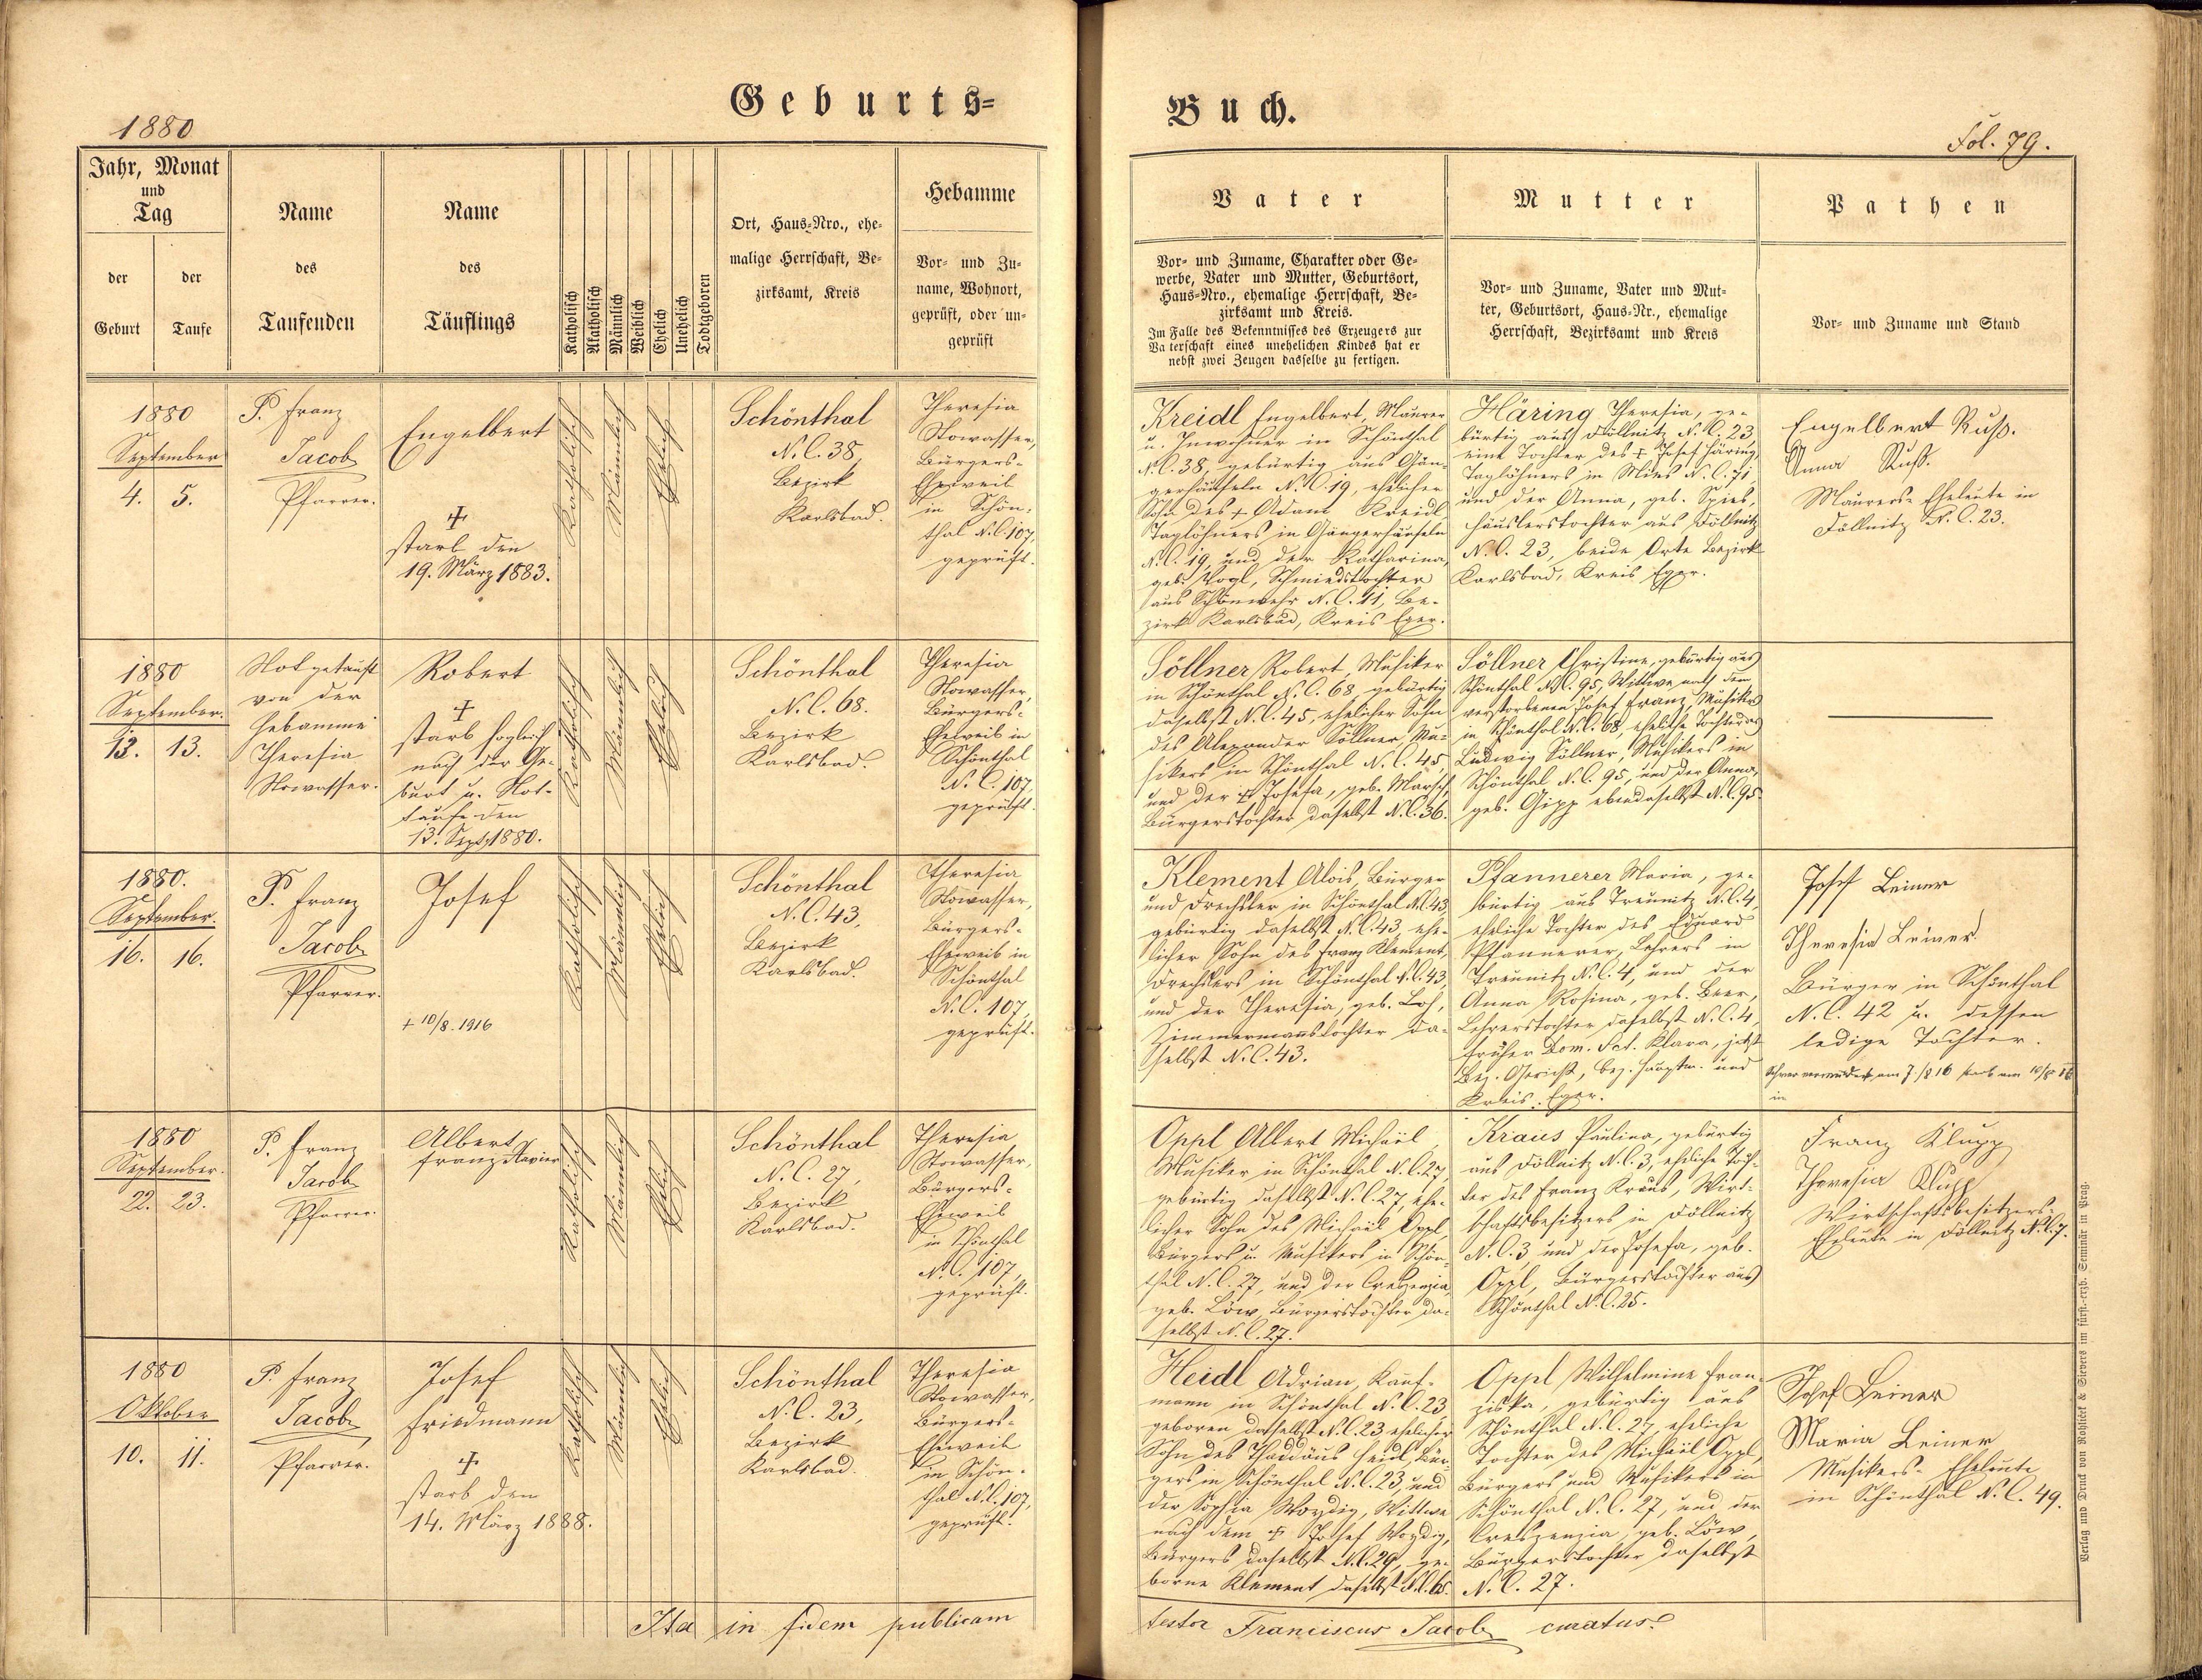 1880
Geburts=
Buch.
Fol. 79.
Jahr, Monat
und
Tag
der
Geburt
der
Taufe
Name
des
Taufenden
Name
des
Täuflings
Katholisch
Akatholisch
Männlich
Weiblich
Ehelich
Unehelich
Todtgeboren
Ort, Haus-Nro., ehe-
malige Herrschaft, Be-
zirksamt, Kreis
Hebamme
Vor- und Zu-
name, Wohnort,
geprüft, oder un-
geprüft
Vater
Vor- und Zuname, Charakter oder Ge-
werbe, Vater und Mutter, Geburtsort,
Haus-Nro., ehemalige Herrschaft, Be-
zirksamt und Kreis.
Im Falle des Bekenntnisses des Erzeugers zur
Vaterschaft eines unehelichen Kindes hat er
nebst zwei Zeugen dasselbe zu fertigen.
Mutter
Vor- und Zuname, Vater und Mut-
ter, Geburtsort, Haus-Nr., ehemalige
Herrschaft, Bezirksamt und Kreis
Pathen
Vor- und Zuname und Stand
1880
September
4. 5.
P. Franz
Jacob
Pfarrer.
Engelbert
+
starb den
19. März 1883.
Katholisch
Männlich
Ehelich
Schönthal
N.C. 38,
Bezirk
Karlsbad.
Theresia
Stowasser,
Bürgers-
Eheweib
in Schön-
thal N.C. 107,
geprüft.
Kreidl Engelbert, Maurer
u. Inwohner in Schönthal
N.C. 38, gebürtig aus Gän-
gerhäuseln N.C. 19, ehelicher
Sohn des + Adam Kreidl
Taglöhners in Gängerhäuseln
N.C. 19, und der Katharina,
geb. Vogl, Schmiedstochter
aus Schönwehr N.C. 11, Be-
zirk Karlsbad, Kreis Eger.
Häring Theresia, ge-
bürtig aus Döllnitz N.C. 23,
eine Tochter des + Josef Häring,
Taglöhners in Mies N.C. 71,
und der Anna, geb. Spies,
Häuslerstochter aus Döllnitz
N.C. 23, beide Orte Bezirk
Karlsbad, Kreis Eger.
Engelbert Ruß.
Anna Ruß.
Maurers-Eheleute in
Döllnitz N.C. 23.
1880
September.
13. 13.
Notgetauft
von der
Hebamme
Theresia
Stowasser.
Robert
+
starb sogleich
nach der Ge-
burt u. Not-
taufe den
13. Sept. 1880.
Katholisch
Männlich
Ehelich
Schönthal
N.C. 68.
Bezirk
Karlsbad.
Theresia
Stowasser,
Bürgers-
Eheweib in
Schönthal
N.C. 107,
geprüft.
Söllner Robert, Musiker
in Schönthal N.C. 68, gebürtig
daselbst N.C. 45, ehelicher Sohn
des Alexander Söllner, Mu-
sikers in Schönthal N.C. 45,
und der + Josefa, geb. Marsch,
Bürgerstochter daselbst N.C. 36.
Söllner Christine, gebürtig aus
Schönthal N.C. 95, Wittwe nach dem
verstorbenen Josef Franz, Musiker
in Schönthal N.C. 68, eheliche Tochter des
Ludwig Söllner, Musikers in
Schönthal N.C. 95, und der Anna,
geb. Gipp ebendaselbst N.C. 95.
1880.
September.
16. 16.
P. Franz
Jacob
Pfarrer.
Josef
+ 10/8. 1916
Katholisch
Männlich
Ehelich
Schönthal
N.C. 43,
Bezirk
Karlsbad.
Theresia
Stowasser,
Bürgers-
Eheweib in
Schönthal
N.C. 107,
geprüft.
Klement Alois, Bürger
und Drechsler in Schönthal N.C. 43,
gebürtig daselbst N.C. 43, ehe-
licher Sohn des Franz Klement,
Drechslers in Schönthal N.C. 43,
und der Theresia, geb. Loh,
Zimmermannstochter da-
selbst N.C. 43.
Pfannerer Maria, ge-
bürtig aus Treunitz N.C. 4,
eheliche Tochter des Eduard
Pfannerer, Lehrers in
Treunitz N.C. 4, und der
Anna Rosina, geb. Beer,
Lehrerstochter daselbst N.C. 4,
früher Dom. Sct. Klara, jetzt
Bez. Gericht, Bez. Hauptm. und
Kreis: Eger.
Josef Leiner
Theresia Leiner.
Bürger in Schönthal
N.C. 42 u. dessen
ledige Tochter.
Schwer verwundet am 7./8 16 starb am 10/8 16
in
1880
September.
22. 23.
P. Franz
Jacob
Pfarrer.
Albert
Franz Xavier
Katholisch
Männlich
Ehelich
Schönthal
N.C. 27,
Bezirk
Karlsbad.
Theresia
Stowasser,
Bürgers-
Eheweib
in Schönthal
N.C. 107,
geprüft.
Oppl Albert Michael,
Musiker in Schönthal N.C. 27,
gebürtig daselbst N.C. 27, ehe-
licher Sohn des Michael Oppl,
Bürgers u. Musikers in Schön-
thal N.C. 27, und der Creszenzia,
geb. Löw, Bürgerstochter da-
selbst N.C. 27.
Kraus Paulina, gebürtig
aus Döllnitz N.C. 3, eheliche Toch-
ter des Franz Kraus, Wirt-
schaftsbesitzers in Döllnitz
N.C. 3 und der Josefa, geb.
Oppl, Bürgerstochter aus
Schönthal N.C. 25.
Franz Klupp
Theresia Klupp
Wirtschaftsbesitzers-
Eheleute in Döllnitz N.C. 7.
1880
Oktober
10. 11.
P. Franz
Jacob
Pfarrer.
Josef
Friedmann
+
starb den
14. März 1888.
Katholisch
Männlich
Ehelich
Schönthal
N.C. 23,
Bezirk
Karlsbad.
Theresia
Stowasser,
Bürgers-
Eheweib
in Schön-
thal N.C. 107,
geprüft.
Heidl Adrian, Kauf-
mann in Schönthal N.C. 23
geboren daselbst N.C. 23 ehelicher
Sohn des Thaddäus Heidl, Bür-
gers in Schönthal N.C. 23, und
der Sophia Woydig, Wittwe
nach dem + Josef Woydig,
Bürgers daselbst N.C. 29, ge-
borne Klement daselbst N.C. 65.
Oppl Wilhelmine Fran-
ziska, gebürtig aus
Schönthal N.C. 27, eheliche
Tochter des Michael Oppl,
Bürgers und Musikers in
Schönthal N.C. 27, und der
Creszenzia, geb. Löw,
Bürgerstochter daselbst
N.C. 27.
Josef Leiner
Maria Leiner
Musikers-Eheleute
in Schönthal N.C. 49.
Ita in fidem publicam
testor Franciscus Jacob curatus.
Verlag und Druck von Rohliček & Sievers im fürst.-erzb. Seminär in Prag.